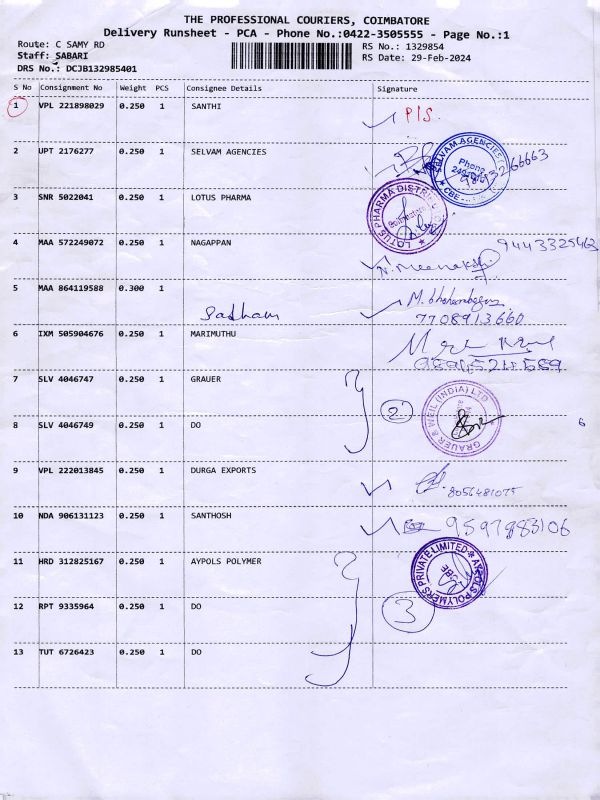 THE PROFESSIONAL COURIERS, COIMBATORE
Delivery Runsheet - PCA - Phone No.:0422-3505555 - Page No.:1
Route: C SAMY RD
RS No.: 1329854
Staff: SABARI
RS Date: 29-Feb-2024
DRS No.: DCJB132985401
S No Consignment No Weight PCS Consignee Details Signature
1 VPL 221898029 0.250 1 SANTHI P/S.
2 UPT 2176277 0.250 1 SELVAM AGENCIES
SELVAM AGENCIES
Phone
CBE
3 SNR 5022041 0.250 1 LOTUS PHARMA
LOTUS PHARMA
4 MAA 572249072 0.250 1 NAGAPPAN 9443325463
5 MAA 864119588 0.300 1
Sadham 7708913660
6 IXM 505904676 0.250 1 MARIMUTHU
7 SLV 4046747 0.250 1 GRAUER
GRAUER & WEIL (INDIA) LTD
2
8 SLV 4046749 0.250 1 DO
6
9 VPL 222013845 0.250 1 DURGA EXPORTS
8056481075
10 NDA 906131123 0.250 1 SANTHOSH 9597883106
11 HRD 312825167 0.250 1 AYPOLS POLYMER
AYPOLS POLYMERS PRIVATE LIMITED
CBE
12 RPT 9335964 0.250 1 DO
3
13 TUT 6726423 0.250 1 DO